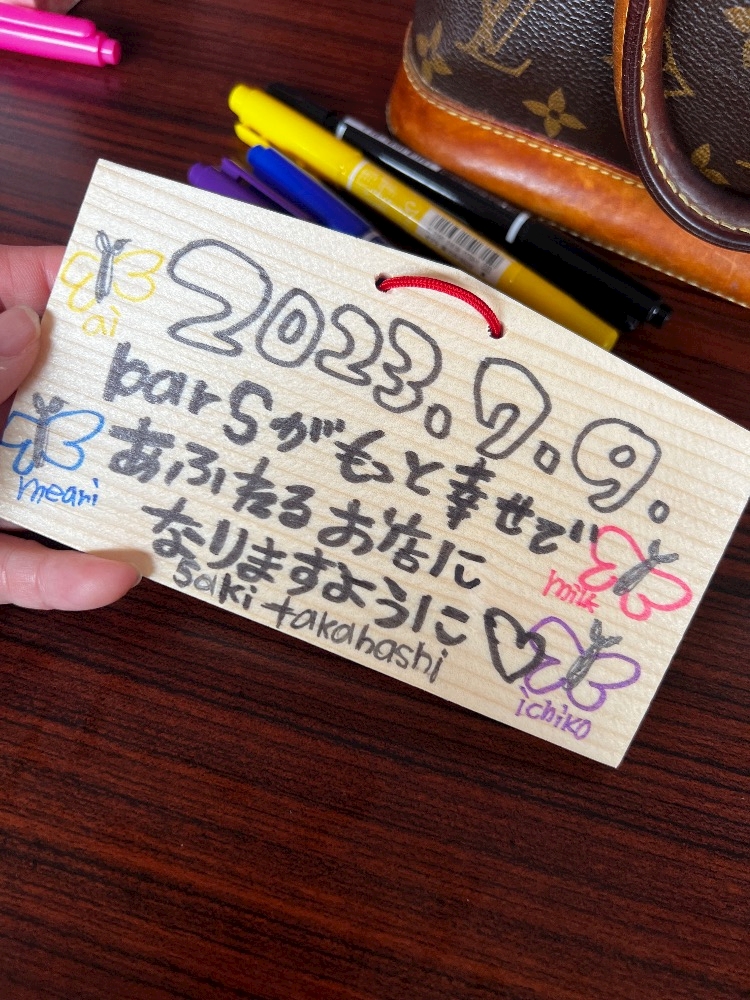 2023.7.9.
ai
bar Sがもっと幸せで
meari
あふれるお店に
milk
なりますように♡
saki takahashi
ichiko
LV